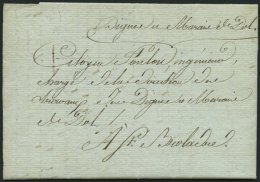 Digues et Marais de Dol.
Citoyen Poulon ingénieur
chargé de la direction des
travaux des Digues et Marais
de Dol /
A St.